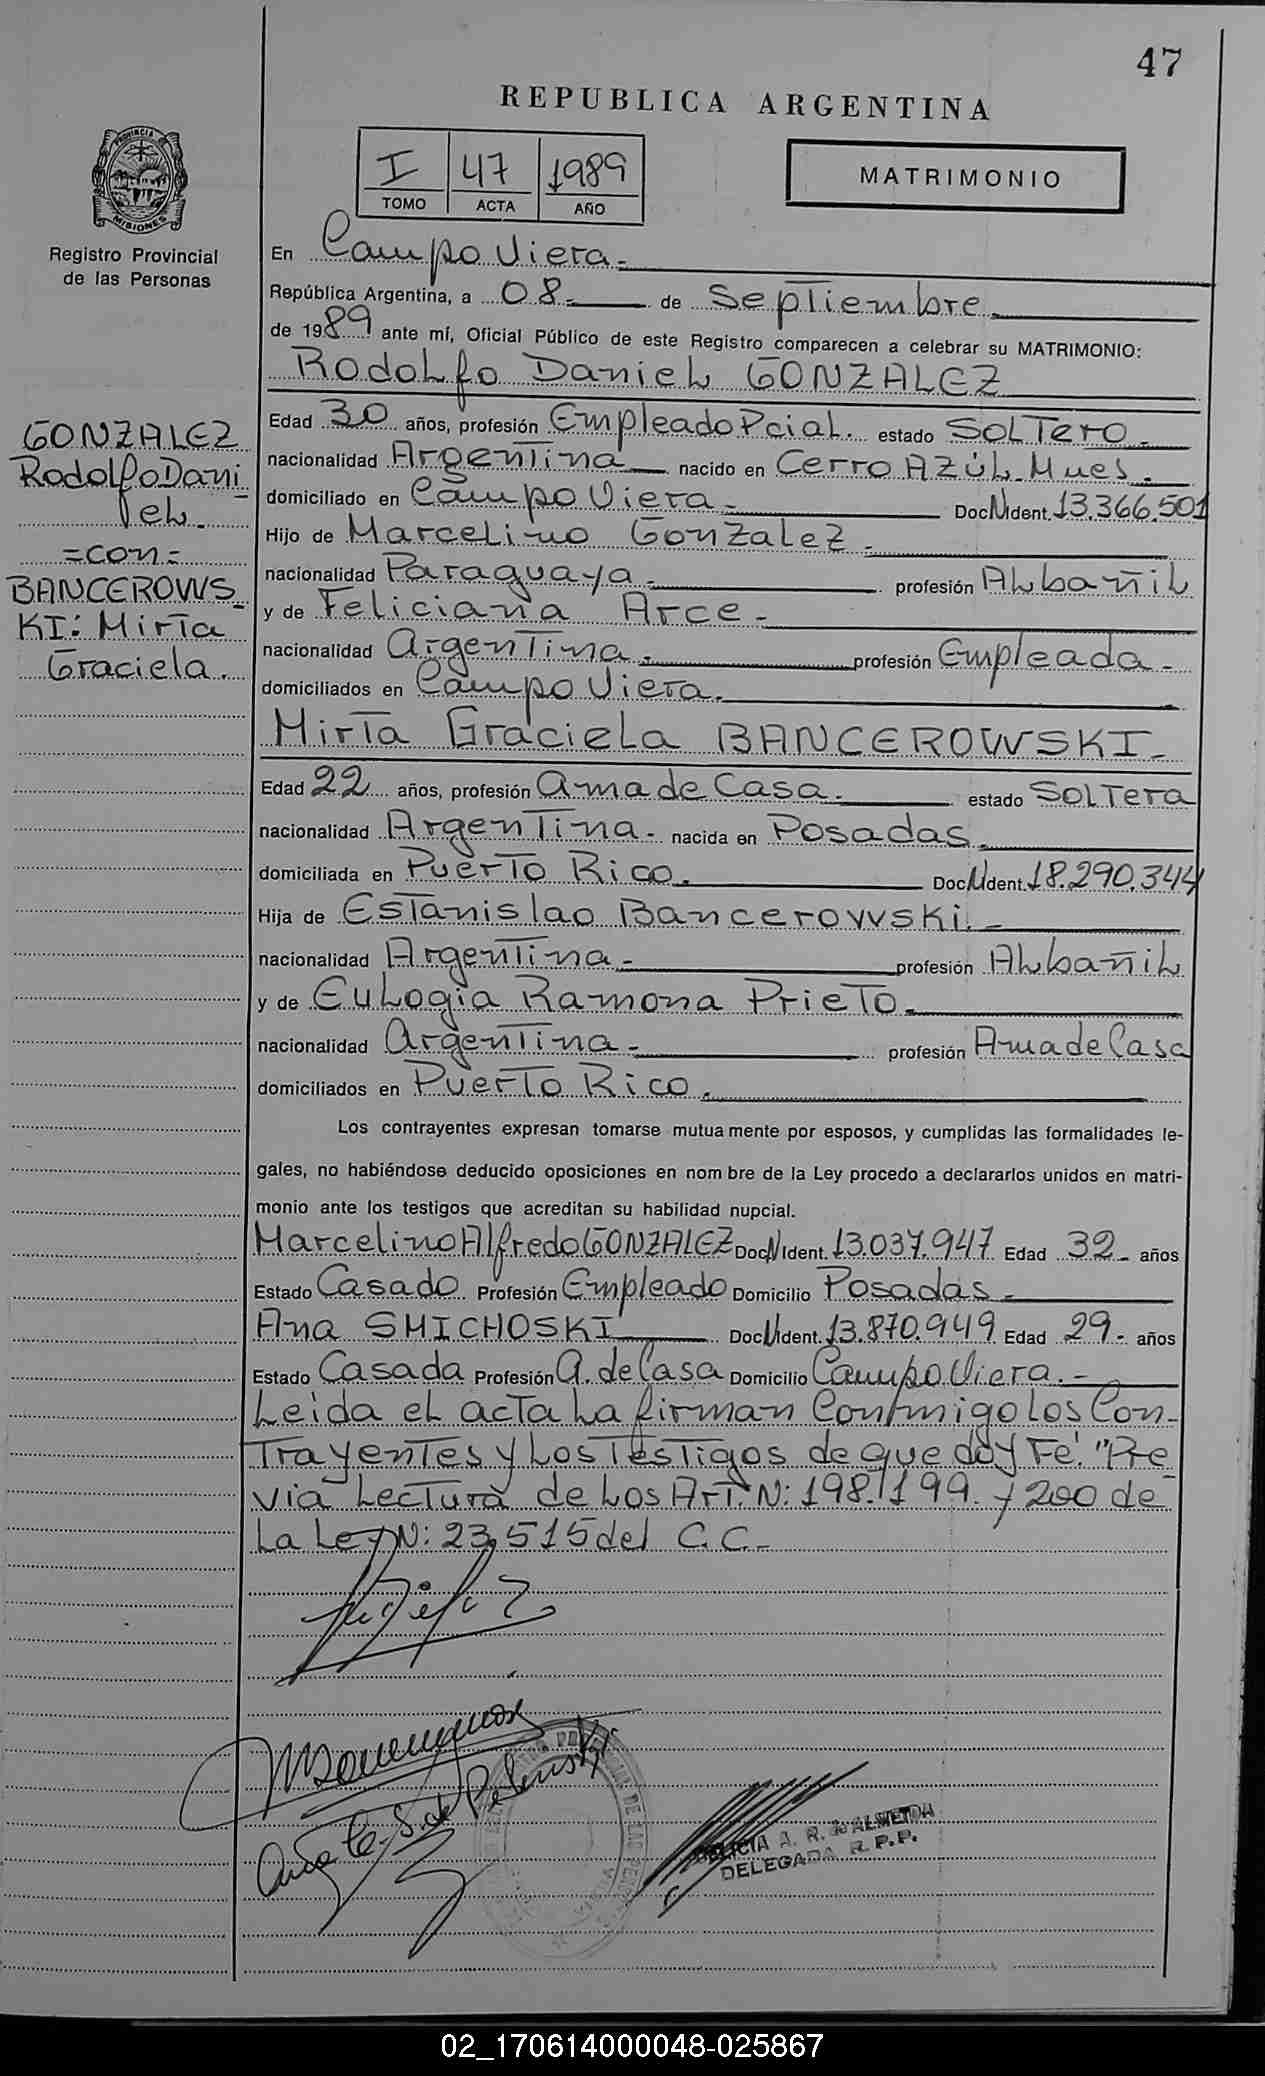 47
REPUBLICA ARGENTINA
PROVINCIA DE MISIONES
I 47 1989
TOMO ACTA AÑO
MATRIMONIO
Registro Provincial
de las Personas
En Campo Viera.-
República Argentina, a 08.- de Septiembre
de 1989 ante mí, Oficial Público de este Registro comparecen a celebrar su MATRIMONIO:
Rodolfo Daniel GONZALEZ
Edad 30 años, profesión Empleado Pcial. estado Soltero.-
nacionalidad Argentina nacido en Cerro Azúl. Mnes.
domiciliado en Campo Viera.- Doc N Ident. 13.366.501
Hijo de Marcelino Gonzalez.-
nacionalidad Paraguaya.- profesión Albañil
y de Feliciana Arce.-
nacionalidad Argentina. profesión Empleada.-
domiciliados en Campo Viera.
Mirta Graciela BANCEROWSKI.-
Edad 22 años, profesión Ama de Casa. estado Soltera
nacionalidad Argentina.- nacida en Posadas.
domiciliada en Puerto Rico. Doc N Ident. 18.290.344
Hija de Estanislao Bancerowski.-
nacionalidad Argentina.- profesión Albañil
y de Eulogia Ramona Prieto.
nacionalidad Argentina.- profesión Ama de Casa
domiciliados en Puerto Rico.
Los contrayentes expresan tomarse mutuamente por esposos, y cumplidas las formalidades le-
gales, no habiéndose deducido oposiciones en nombre de la Ley procedo a declararlos unidos en matri-
monio ante los testigos que acreditan su habilidad nupcial.
Marcelino Alfredo GONZALEZ Doc N Ident. 13.037.947 Edad 32.- años
Estado Casado. Profesión Empleado Domicilio Posadas.-
Ana SMICHOSKI Doc N Ident. 13.870.949 Edad 29.- años
Estado Casada Profesión A. de Casa Domicilio Campo Viera.-
Leída el acta la firman Conmigo los Con-
trayentes y los Testigos de que doy Fe. "Pre
via lectura de los Art. N: 198. 199. y 200 de
la Ley N: 23.515 del C.C.-
GONZALEZ
Rodolfo Dani
iel.-
=con=
BANCEROWS
KI: Mirta
Graciela.
A. R. ALMEIDA
DELEGADA R. P. P.
02_170614000048-025867